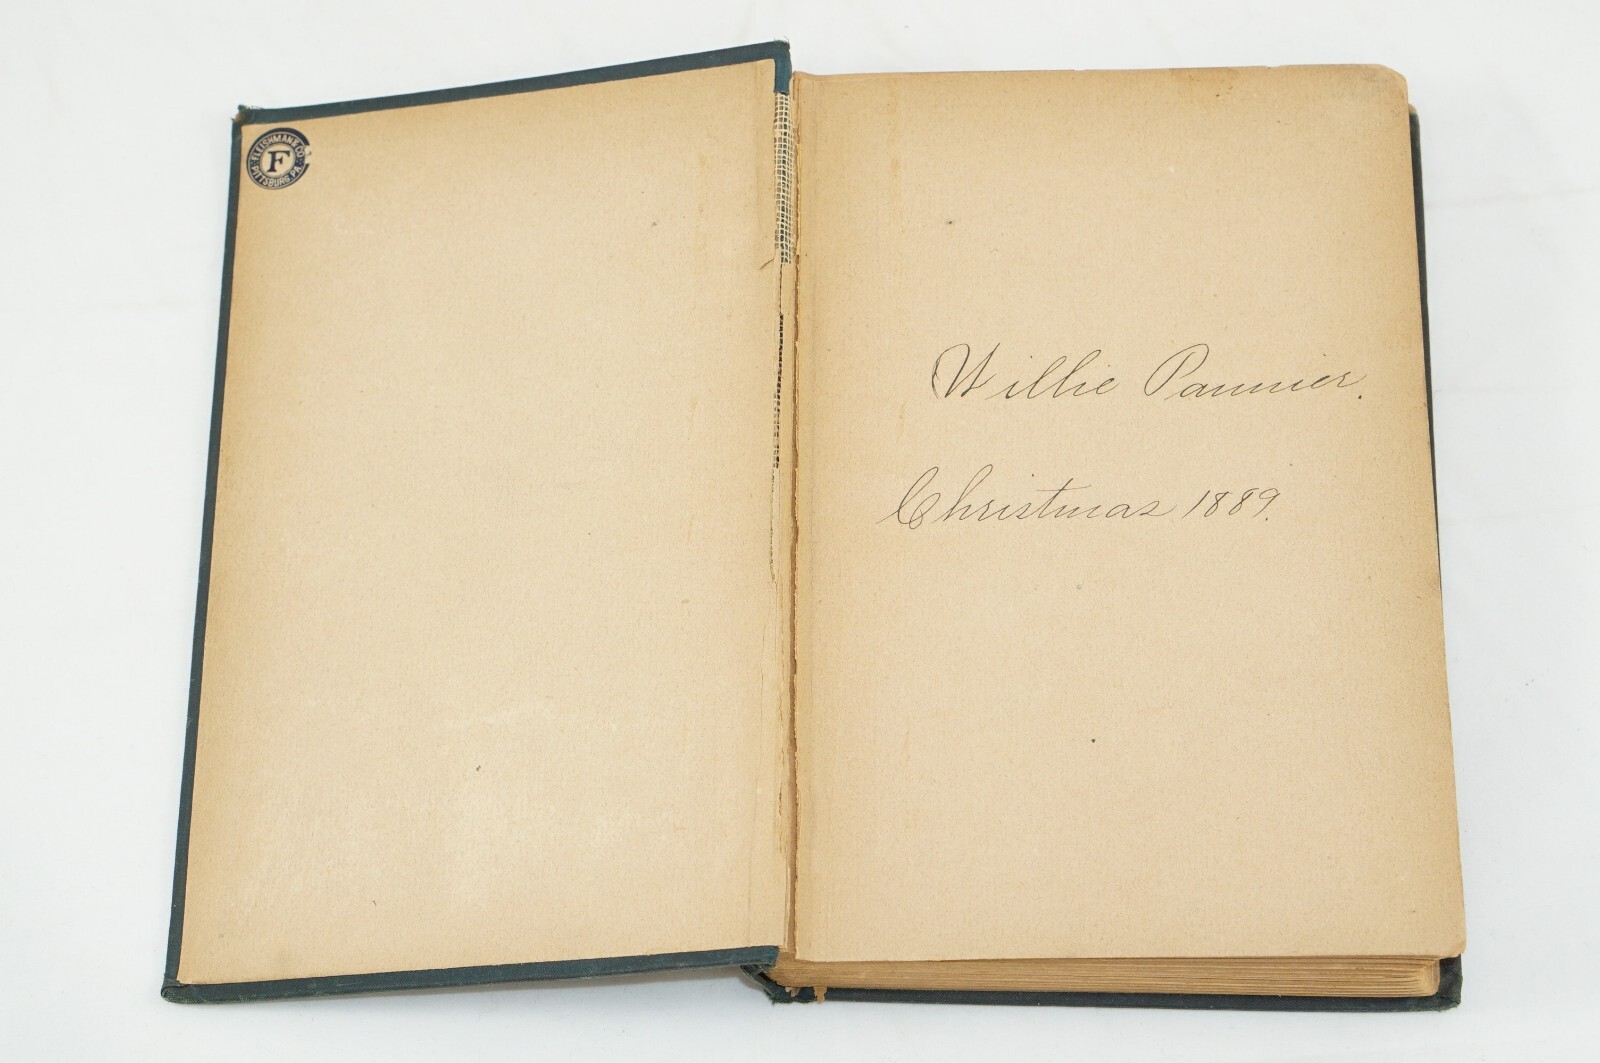 FLEISHMAN & CO
F
PITTSBURG, PA.
Willie Pannier.
Christmas 1889.